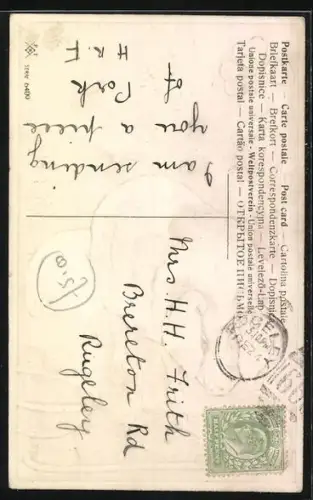 Postkarte — Carte postale — Post card — Cartolina postale
Briefkaart — Brefkort — Correspondenzkarte — Dopisnice
Dopisnice — Karta korespondencyjna — Levelező-Lap
Unione postale universale - Weltpostverein - Union postale universelle
Tarjeta postal — Cartão postal — ОТКРЫТОЕ ПИСЬМО
I am sending
you a piece
of Pork
H. R. F
Mrs H. H. Frith
Brereton Rd
Rugeley